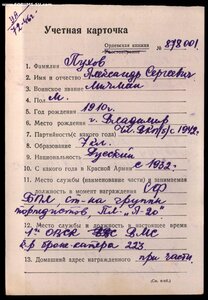 Учетная карточка
Орденская книжка
Удостоверение № 878001.
1. Фамилия Пухов
2. Имя и отчество Александр Сергеевич
3. Воинское звание Мичман
4. Пол М.
5. Год рождения 1910 г.
6. Место рождения г. Владимир
7. Партийность (с какого года) с 1942.
8. Образование 7 кл.
9. Национальность Русский
10. С какого года в Красной Армии с 1932.
11. Место службы (наименование части) и занимаемая
должность в момент награждения СФ
БПЛ ст-на группы
торпедистов, ПЛ-
12. Место службы и должность в настоящее время
1
13. Домашний адрес награжденного при части.
(См. н/об.)